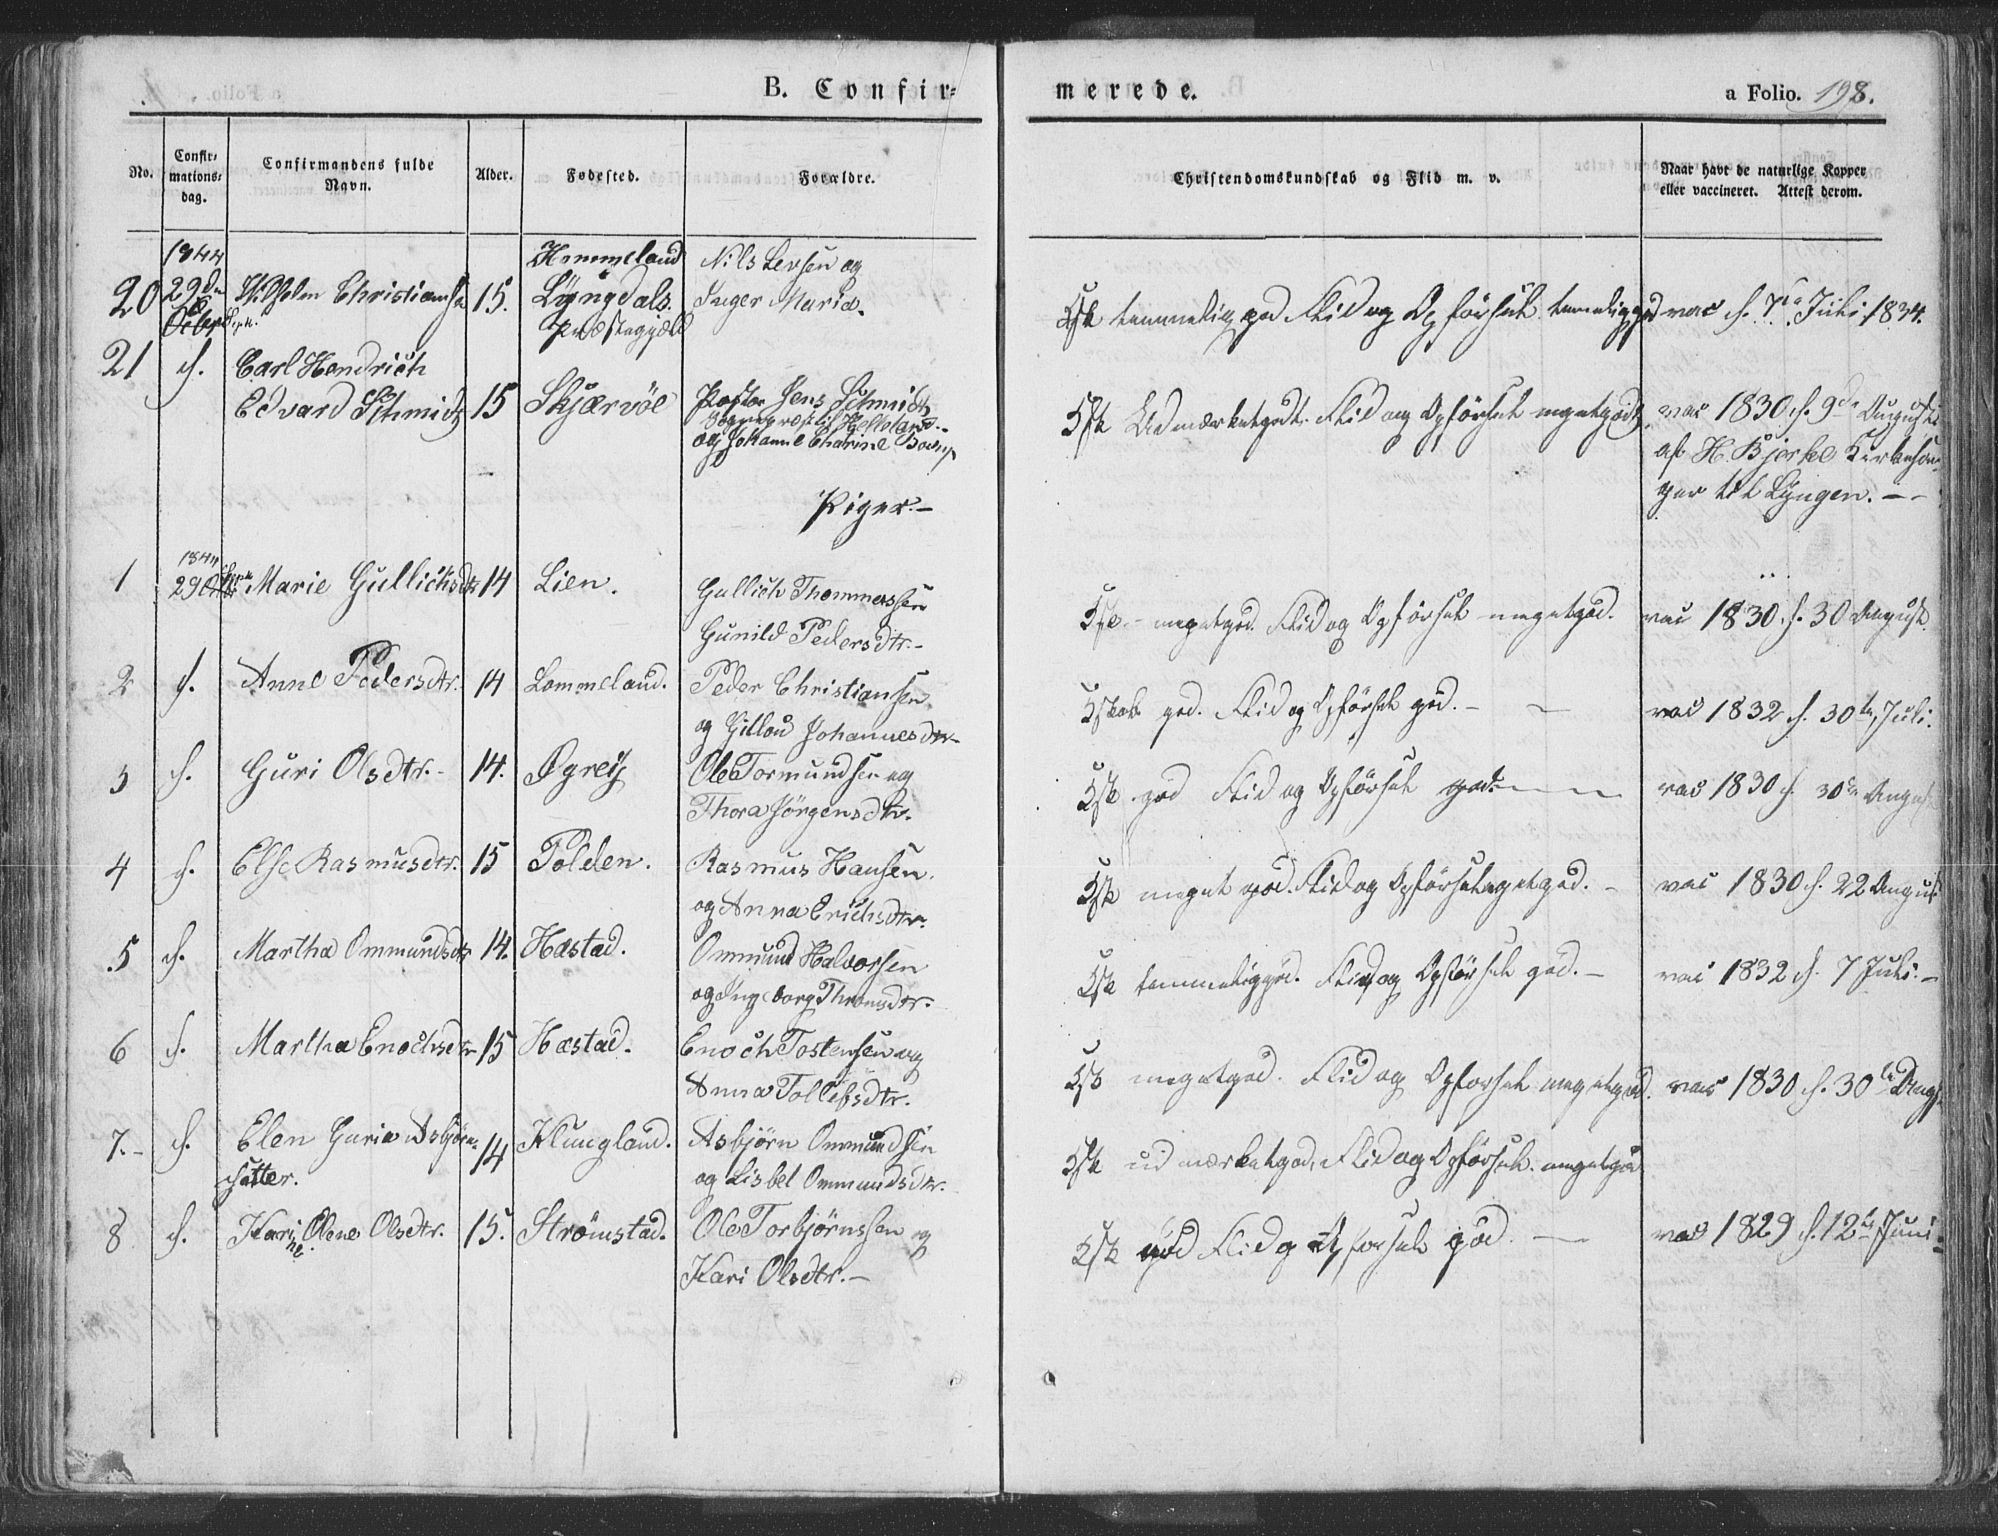 B. Confir-
merede.
a Folio. 198.
No.
Confir-
mations-
dag.
Confirmandens fulde
Navn.
Alder.
Fødested.
Forældre.
Christendomskundskab og Flid m. v.
Naar havt de naturlige Kopper
eller vaccineret. Attest derom.
1844
Hommeland
Nils Levsen og
20 29de Wilhelm Christiansen 15. Lÿngdals. Inger Maria.
Præstegjæld
Kdsk temmelig god Flid og Opförsel temelig god vac d. 7de Juli 1834.
21 d. Carl Hendrich
Edvard Schmidt 15 Skjærvöe Pastor Jens Schmidt
Sogneprest til Helleland
og Johanne Cathrine Bornp
Kdsk Udmærketgodt. Flid og Opförsel megetgodt. vac 1830 d. 9de Augusti
af H. Bjerke Kirkesan-
ger til Lÿngen. - -
Piger.-
1844
1 29 Marie Gullichsdtr 14 Lien. Gullich Thommessen
Gunild Pedersdtr.-
Kdsk - megetgod. Flid og Opförsel megetgod. vac 1830 d. 30 August.
2 d. Anne Pedersdtr. 14 Lommeland. Peder Christiansen
og Gillou Johannesdtr-
Kdskab god. Flid og Opförsel god. - - vac 1832 d. 30te Juli.
3 d. Guri Olsdtr.- 14. Øgreij Ole Tormundsen og
Thora Jörgensdtr.
Kdsk god Flid og Opförsel god. vac 1830 d. 30te August
4 d. Else Rasmusdtr. 15 Polden. Rasmus Hansen.
og Anna Erichsdtr.
Kdsk meget god. Flid og Opförsel megetgod. - vac 1830 d. 22 August
5 d. Martha Ommundsdtr 14. Hæstad. Ommund Halvorsen
og Ingeborg Thromsdtr.
Kdsk temmeliggod. Flid og Opförsel god. - vac 1832 d. 7 Juli. -
6 d. Martha Enochsdtr 15 Hæstad. Enoch Tostensen og
Anna Tollefsdtr.
Kdsk megetgod. Flid og Opförsel megetgod. vac 1830 d. 30te Aug.
7.- d. Elen Guria Asbjørns- 14 Klungland. Asbjörn Ommundsen
datter. og Lisbet Ommundsdtr.
Kdsk udmærketgod, Flid og Opförsel megetgod
8 d. Karine Olene Olsdtr. 15. Strömstad. Ole Torbjörnssen og
Kari Olsdtr.-
Kdsk god Flid og Opforsel god. - vac 1829 d. 12te Juni.